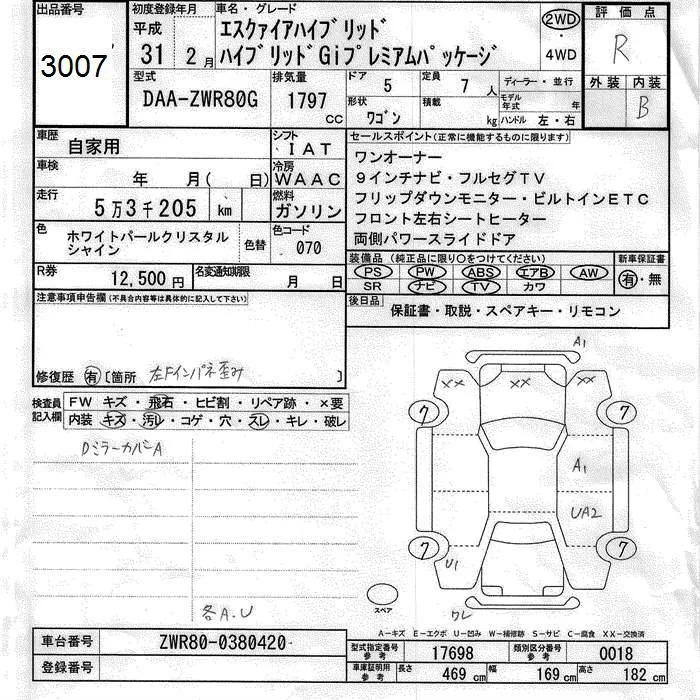 出品番号
3007
初度登録年月
平成
31 2月
車名・グレード
エスクァイアハイブリッド
ハイブリッドGiプレミアムパッケージ
2WD
・
4WD
評価点
R
外装 内装
B
型式
DAA-ZWR80G
排気量
1797
CC
ドア
5
形状
ワゴン
定員
7人
積載
kg
ディーラー・並行
モデル年式 年
ハンドル 左・右
車歴
自家用
シフト
IAT
車検
年 月( 日)
冷房
WAAC
走行
5万3千205 km
燃料
ガソリン
色
ホワイトパールクリスタル
シャイン
色替
色コード
070
R券
12,500円
名変通知期限
月 日
セールスポイント(正常に機能するものに限ります)
ワンオーナー
9インチナビ・フルセグTV
フリップダウンモニター・ビルトインETC
フロント左右シートヒーター
両側パワースライドドア
装備品 (純正品に限り○をつけてください)
PS PW ABS エアB AW
SR ナビ TV カワ
新車保証書
有・無
後日品
保証書・取説・スペアキー・リモコン
注意事項申告欄(不具合内容等は具体的に記入して下さい)
修復歴 有 〔箇所 左Fインパネ歪み 〕
検査員
記入欄
FW キズ・飛石・ヒビ割・リペア跡・×要
内装 キズ・汚レ・コゲ・穴・スレ・キレ・破レ
DミラーカバーA
各A.U
A1
XX XX XX
7 7
A1
UA2
7 7
U1
ワレ
スペア
A-キズ E-エクボ U-凹み W-補修跡 S-サビ C-腐食 XX-交換済
車台番号
ZWR80-0380420
登録番号
型式指定番号
参考
17698
類別区分番号
参考
0018
車庫証明用
参考
長さ 469cm 幅 169cm 高さ 182cm